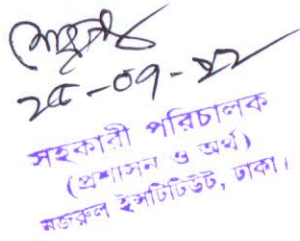 ২৫-০৭-২২
সহকারী পরিচালক
(প্রশাসন ও অর্থ)
নজরুল ইন্সটিটিউট, ঢাকা।